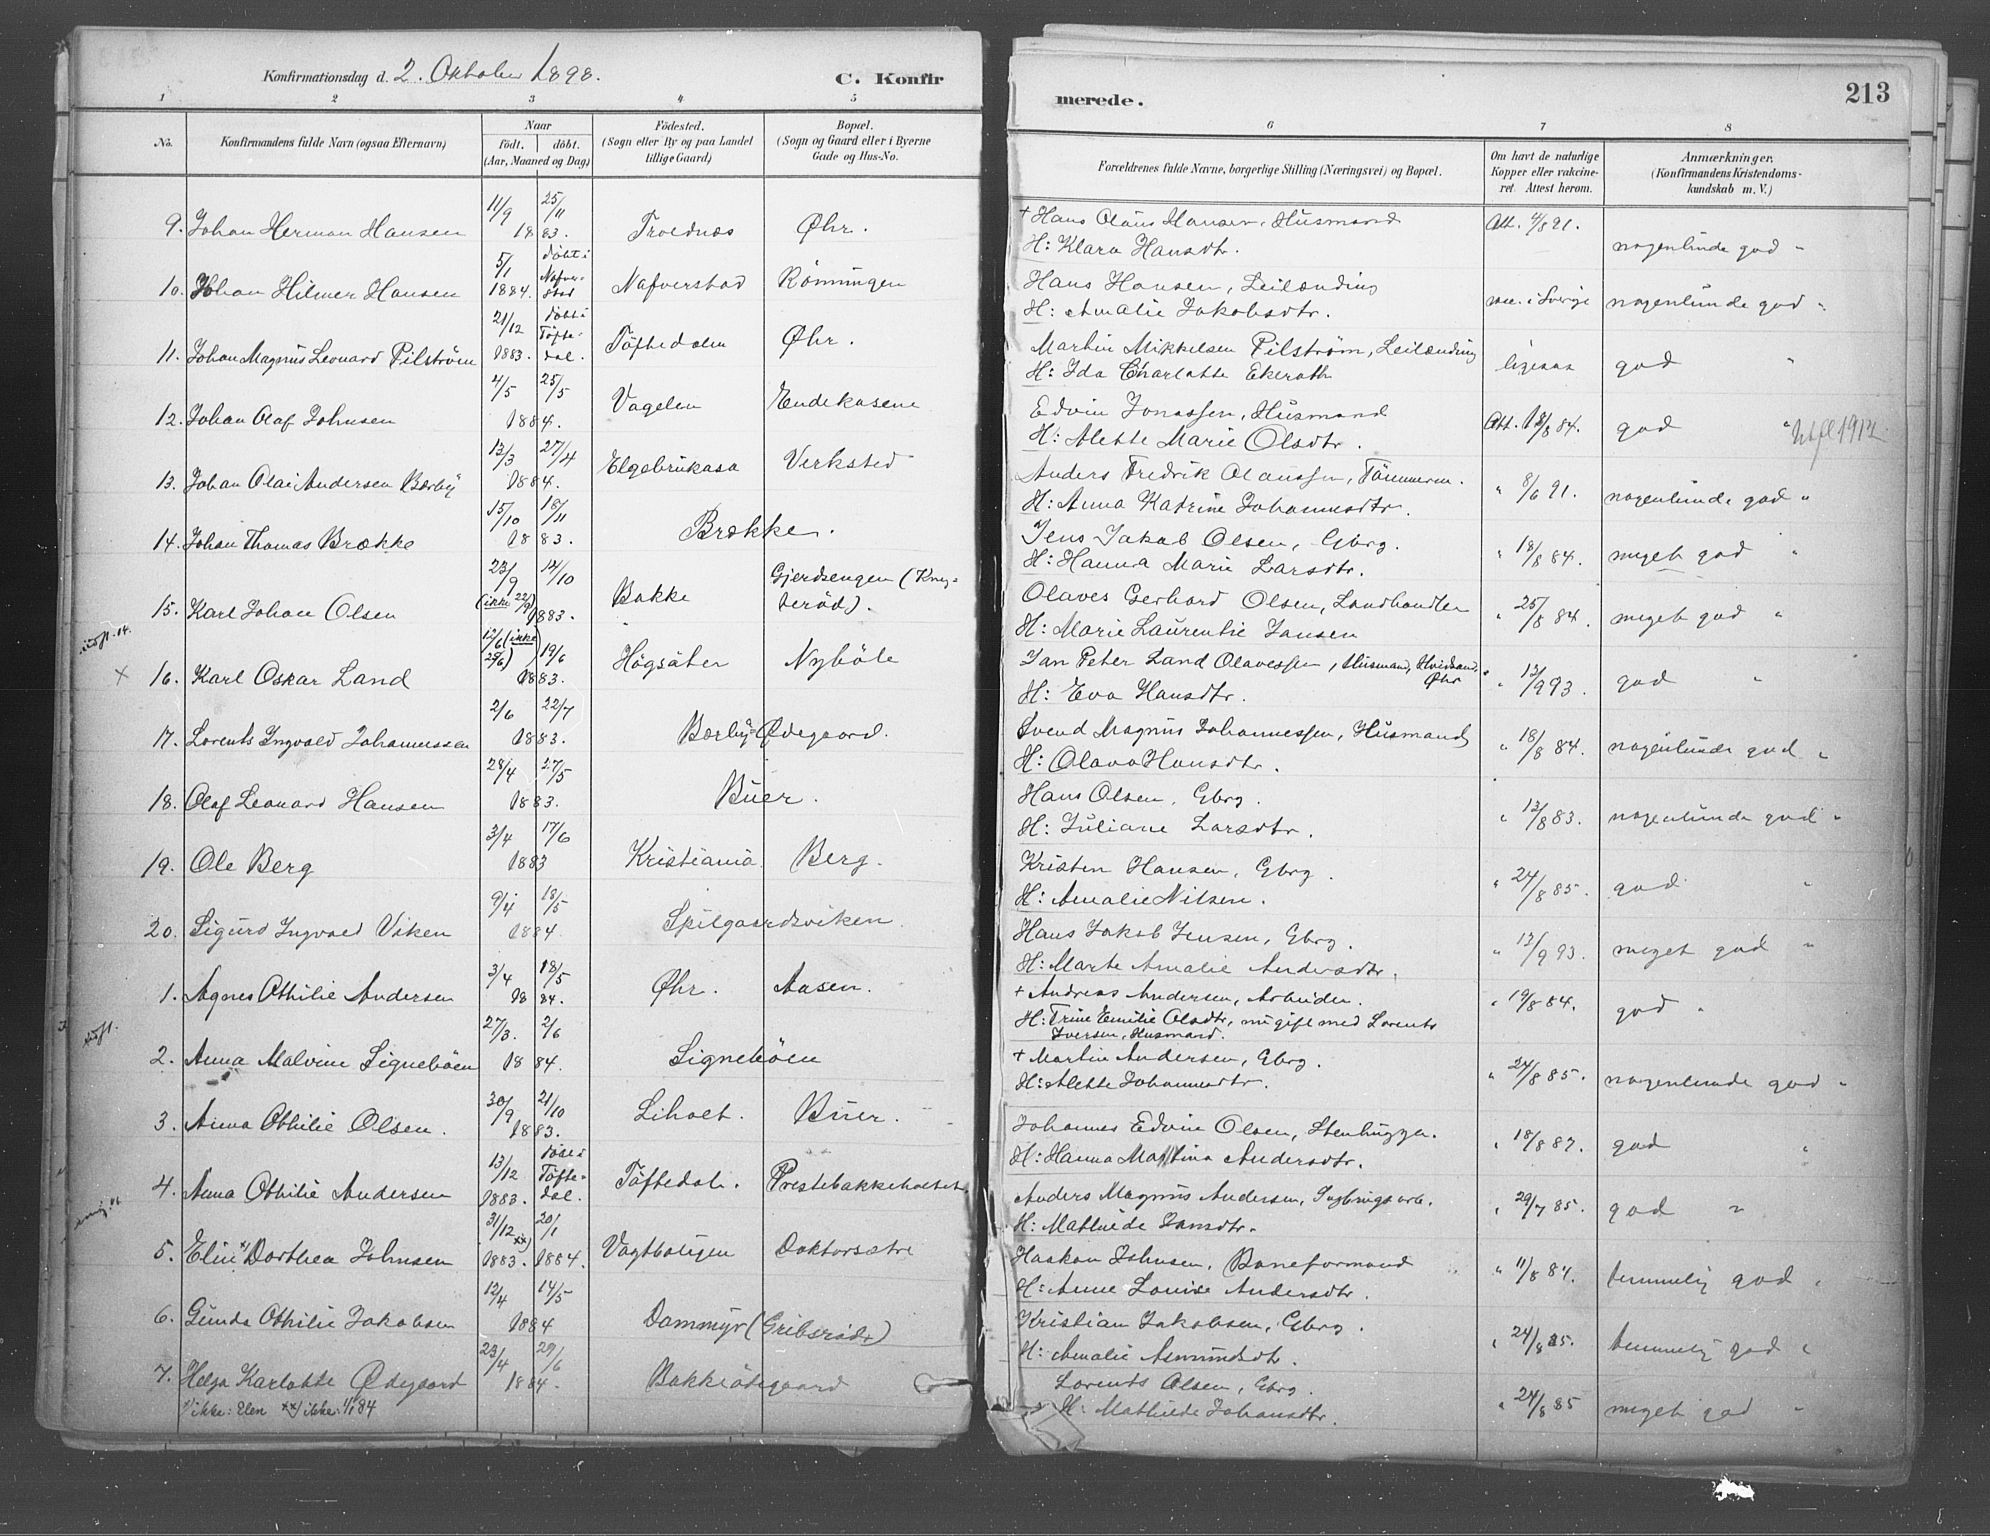 Konfirmationsdag d. 2. Oktober 1898. C. Konfirmerede. 213
1 2 3 4 5 6 7 8
No. Konfirmandens fulde Navn (ogsaa Efternavn) Naar født. døbt. (Aar, Maaned og Dag) Fødested. (Sogn eller By og paa Landet tillige Gaard) Bopæl. (Sogn og Gaard eller i Byerne Gade og Hus-No. Forældrenes fulde Navne, borgerlige Stilling (Næringsvei) og Bopæl. Om havt de naturlige Kopper eller vaccineret. Attest herom. Anmærkninger. (Konfirmandens Kristendomskundskab m. V.)
9. Johan Herman Hansen 11/9 25/11 1883. Troldnæs Øhr. + Hans Olaus Hansen, Husmand Att. 4/8 91. nogenlunde god "
H: Klara Hansdtr.
10. Johan Hilmer Hansen 5/1 1884. døbt i Nafverstad Nafverstad Rönningen Hans Hansen, Leilænding vac. i Sverige nogenlunde god "
H: Amalie Jakobsdtr.
11. Johan Magnus Leonard Pilström 21/12 1883. døbt i Töftedal. Töftedalen Øhr. Martin Mikkelsen Pilström, Leilænding ligesaa god "
H: Ida Charlotte Ekeroth
12. Johan Olaf Johnsen 4/5 25/5 1884. Vagelen Endekasene Edvin Jonassen, Husmand Att. 18/8 84. god " Utfl 1912.
H: Alette Marie Olsdtr.
13. Johan Olai Andersen Børby 13/3 27/4 1884. Elgebrukasa Verksted Anders Fredrik Olaussen, Tömmerm. " 8/6 91. nogenlunde god "
H: Anna Katrine Johannesdtr.
14. Johan Thomas Brække 15/10 18/11 1883. Brække. Jens Jakob Olsen, Gbrg. " 18/8 84. meget god "
H: Hanna Marie Larsdtr.
15. Karl Johan Olsen 23/9 (ikke 22/9) 14/10 1883. Bakke Gjerdsengen (Knyteröd). Olaves Gerhard Olsen, Landhandler " 25/8 84. meget god "
H: Marie Laurentie Jansen
x 16. Karl Oskar Land 12/6 (ikke 25/6) 19/6 1883. Högsäter Nyböle Jan Peter Land Olavessen, Husmand, Hvidsand, Øhr " 13/9 93. god "
H: Eva Hansdtr.
17. Lorents Ingvald Johannessen 2/6 22/7 1883. Børby Ødegaard. Svend Magnus Johannessen, Husmand " 18/8 84. nogenlunde god "
H: Olava Hansdtr.
18. Olaf Leonard Hansen 28/4 27/5 1883. Buer. Hans Olsen, Gbrg. " 13/8 83. nogenlunde god "
H: Juliane Larsdtr.
19. Ole Berg 3/4 17/6 1883 Kristiania. Berg. Kristen Hansen, Gbrg. " 24/8 85. god "
H: Amalie Nilsen.
20. Sigurd Ingvald Viken 9/4 18/5 1884 Spilgaardsviken Hans Jakob Jensen, Gbrg. " 13/9 93. meget god "
H: Marte Amalie Andersdtr.
1. Agnes Othilie Andersen 3/4 18/5 1884. Øhr. Aasen. + Andreas Andersen, Arbeider. " 19/8 84. god "
H: Trine Emilie Olsdtr, nu gift med Lorents Iversen, Husmand.
2. Anna Malvine Signebøen 27/3. 2/6 1884. Signebøen + Martin Andersen, Gbrg. " 24/8 85. nogenlunde god "
H: Alette Johannesdtr.
3. Anna Othilie Olsen. 30/9 21/10 1883. Liholt. Buer. Johannes Edvin Olsen, Stenhugger. " 18/8 87. god "
H: Hanna Martina Andersdtr.
4. Anna Othilie Andersen 13/12 1883. Døbt i Töftedal. Töftedal. Prestebakkeholtet. Anders Magnus Andersen, Sagbrugsarb. " 29/7 85. god "
H: Mathilde Jansdtr.
5. Elin x) Dorthea Johnsen 31/12 xx) 1883. 20/1 1884. Vagtboligen Doktorsætre Haakon Johnsen, Baneformand " 11/8 84. temmelig god "
H: Anne Lovise Andersdtr.
6. Gunda Othilie Jakobsen 12/4 14/5 1884 Dammyr (Gribsröd) Kristian Jakobsen, Gbrg. " 24/8 85. temmelig god "
H: Amalie Asmundsdtr.
7. Helga Karlotte Ødegaard 23/4 29/6 1884. Bakkeødegaard Lorents Olsen, Gbrg. " 24/8 85 meget god "
H: Mathilde Johansdtr.
x) ikke: Elen xx) ikke: 1/1 84